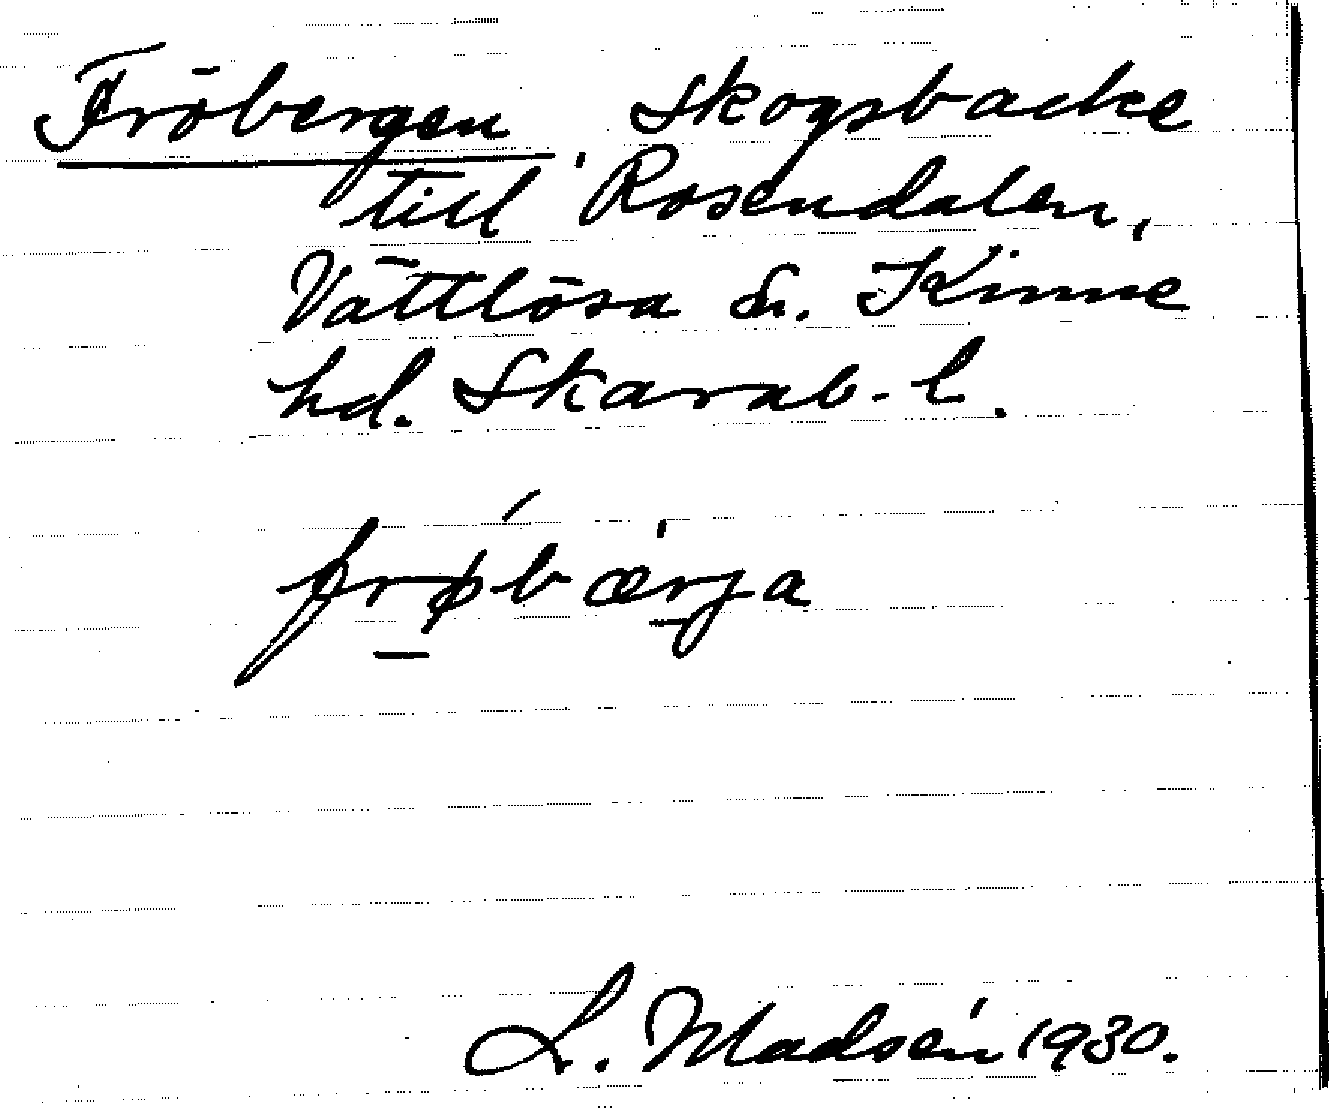 Fröbergen, skogsbacke
till Rosendalen,
Vättlösa sn. Kinne
hd. Skarab. l.
frøbærja
L. Madsén 1930.